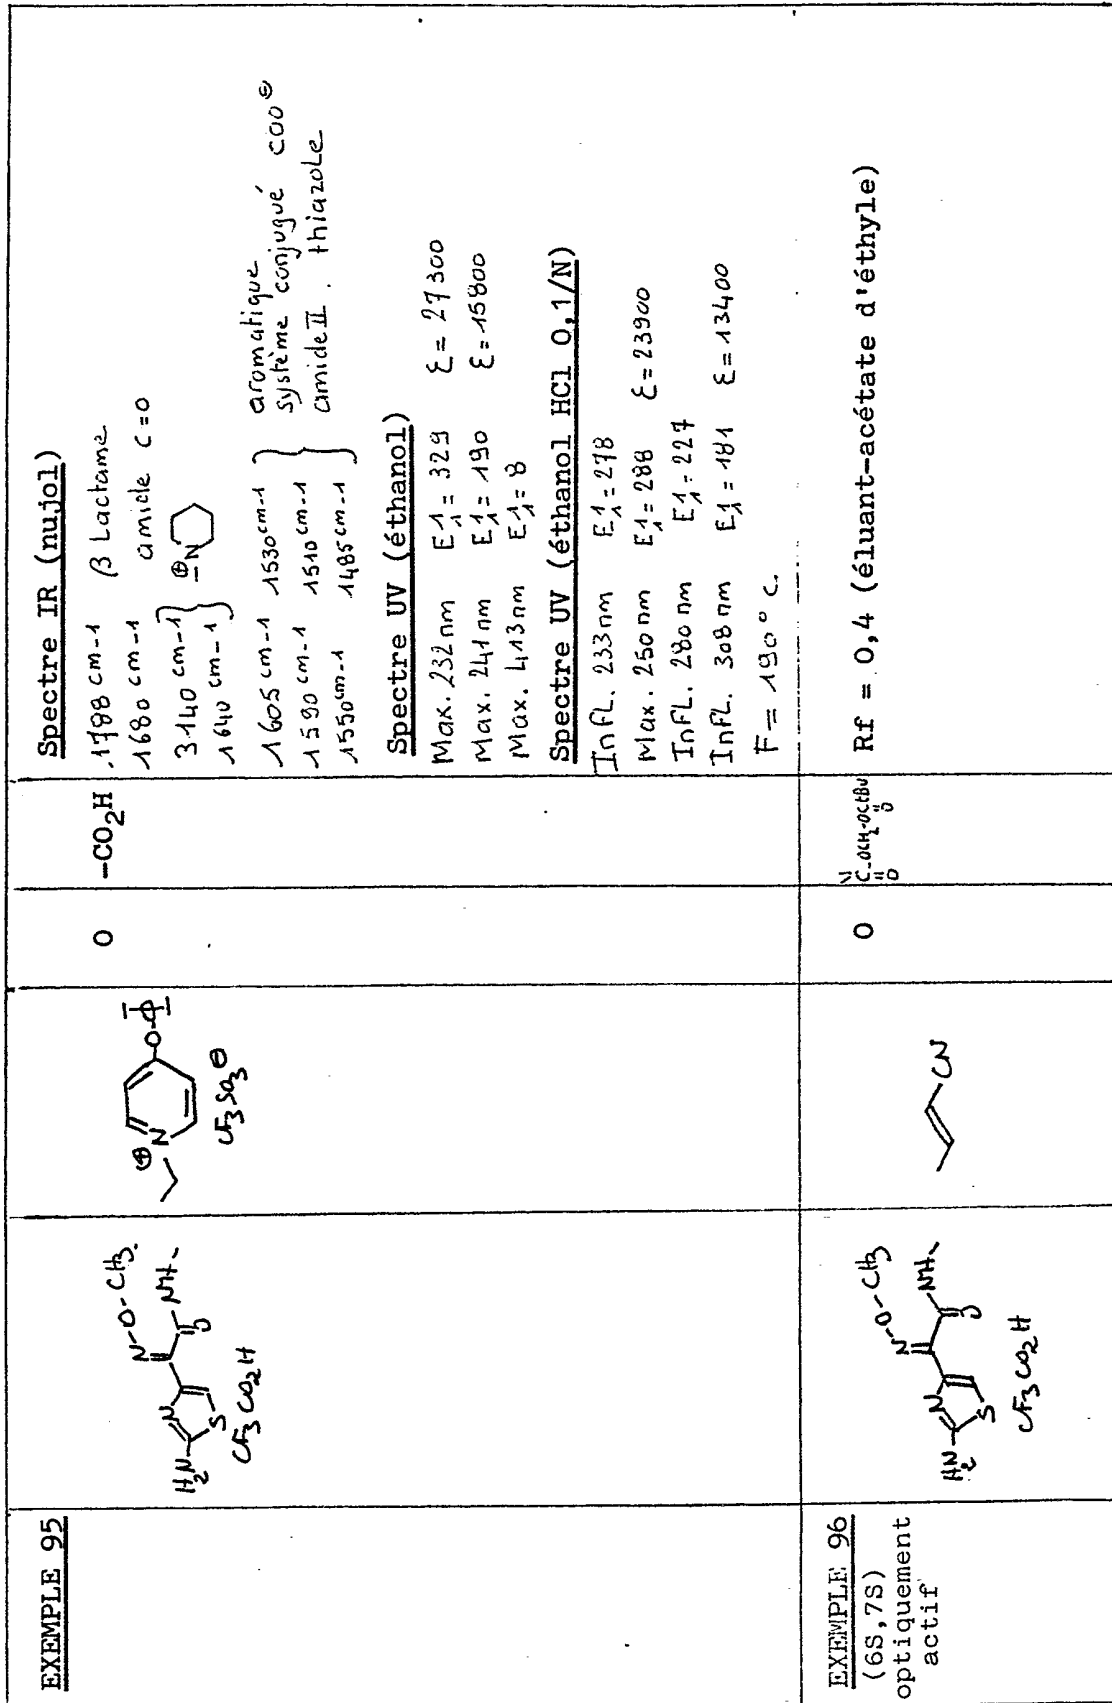 EXEMPLE 95
H₂N
N
S
N-O-CH₃.
O
NH-
CF₃CO₂H
⊕
N
O
CF₃SO₃⊖
O
-CO₂H
Spectre IR (nujol)
1788 cm-1 β Lactame
1680 cm-1 amide C=O
3140 cm-1 }
1640 cm-1 }
⊕
-N
1605 cm-1 1530 cm-1 } aromatique
1590 cm-1 1510 cm-1 } système conjugué COO⊖
1550 cm-1 1485 cm-1 } amide II. thiazole
Spectre UV (éthanol)
Max. 232 nm E¹₁ = 329 Ɛ = 27300
Max. 241 nm E¹₁ = 190 Ɛ = 15800
Max. 413 nm E¹₁ = 8
Spectre UV (éthanol HCl 0,1/N)
Infl. 233 nm E¹₁ = 278
Max. 250 nm E¹₁ = 288 Ɛ = 23900
Infl. 280 nm E¹₁ = 227
Infl. 308 nm E¹₁ = 181 Ɛ = 13400
F = 190° C.
EXEMPLE 96
(6S,7S)
optiquement
actif
H₂N
N
S
N-O-CH₃
O
NH-
CF₃CO₂H
CN
O
C-OCH₂-OCtBu
O O
Rf = 0,4 (éluant-acétate d'éthyle)